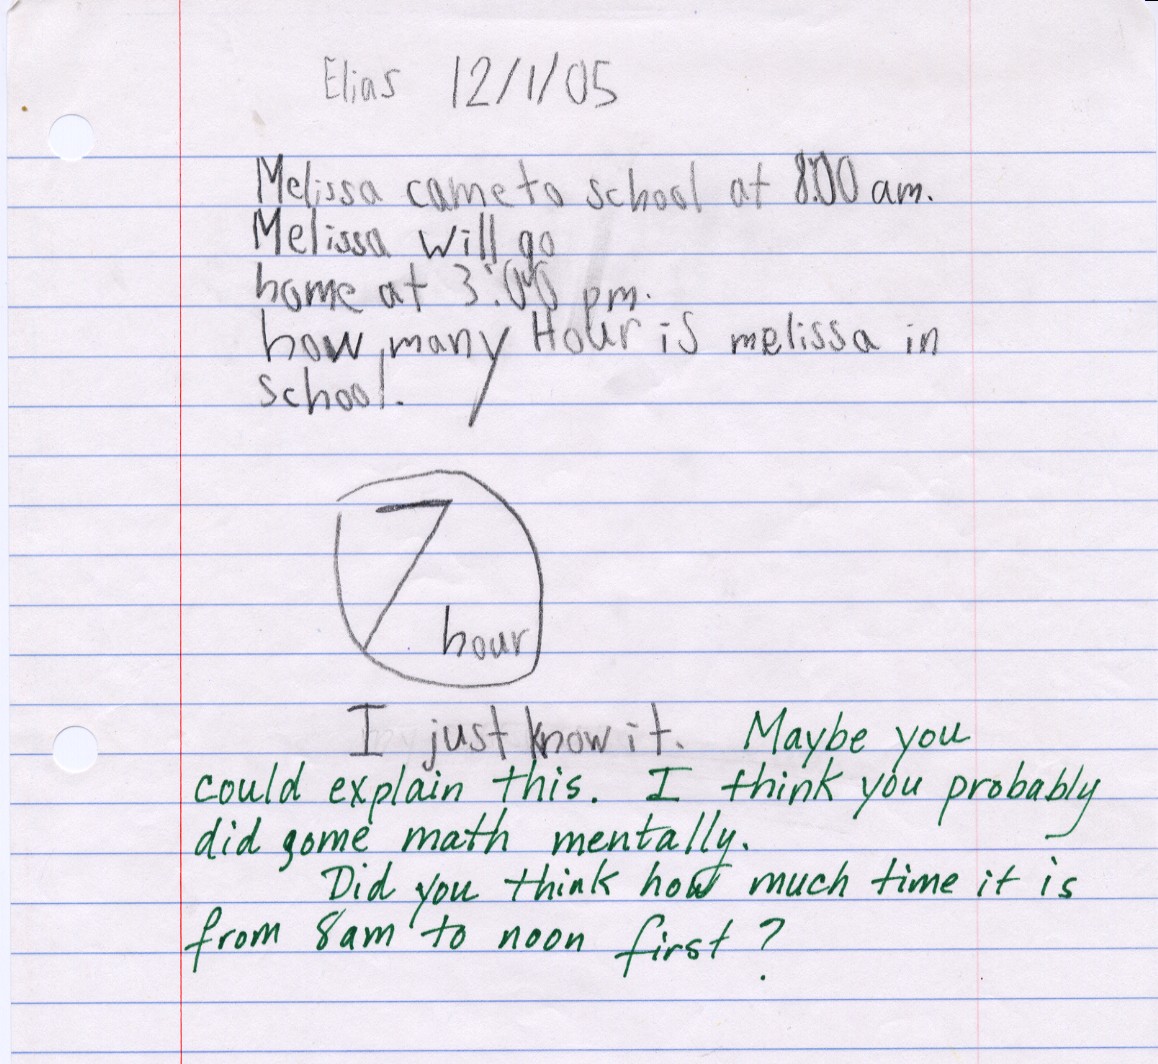 Elias 12/1/05
Melissa came to school at 8:00 am.
Melissa will go
home at 3:00 pm.
how many Hour is melissa in
school.
7
hour
I just know it. Maybe you
could explain this. I think you probably
did some math mentally.
Did you think how much time it is
from 8am to noon first?